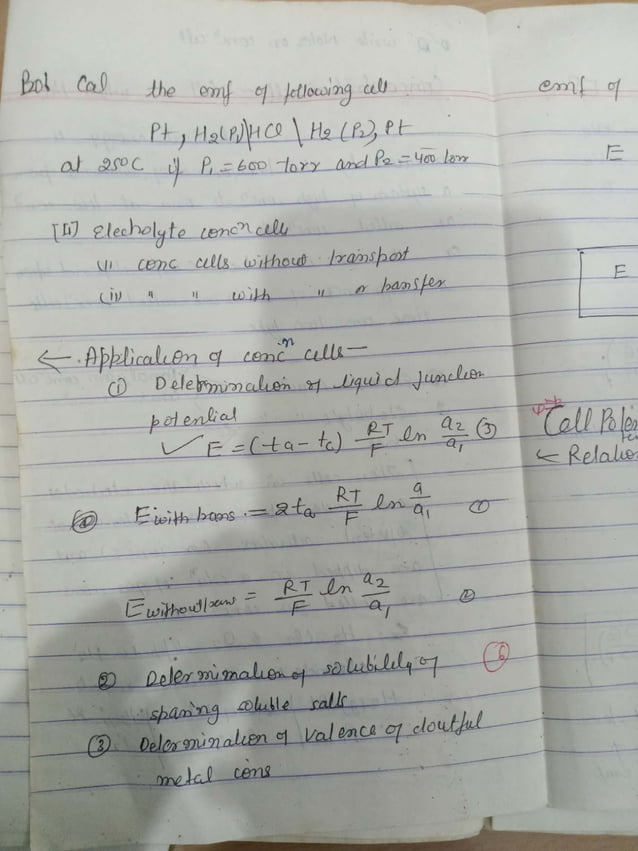 Cal the emf of following cell
Pt, H2(P1)|HCl | H2 (P2), Pt
at 250C if P1 = 600 torr and P2 = 400 torr
[II] Electrolyte concn cells
(i) conc cells without transport
(ii) " " with " or transfer
← Application of concn cells—
① Determination of liquid junction
potential
✓ E = (ta - tc) RT/F ln a2/a1 ③
E with trans. = 2ta RT/F ln a/a1 ①
E without trans = RT/F ln a2/a1 ②
② Determination of solubility of
sparing soluble salts
⑥
③ Determination of valence of doutful
metal ions
emf of
E
E
Cell Poten
← Relatio